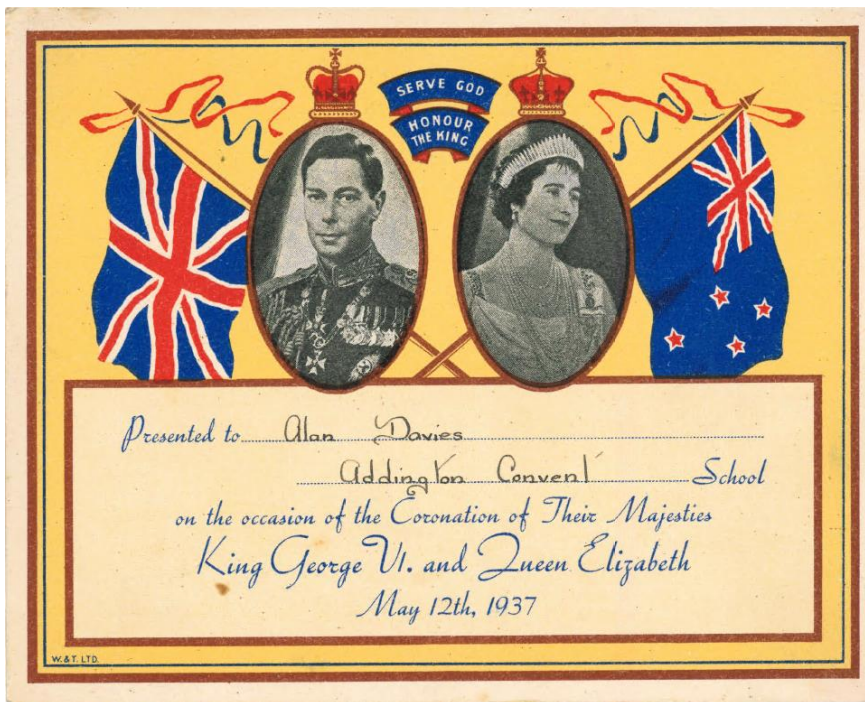 SERVE GOD
HONOUR
THE KING
Presented to Alan Davies
Addington Convent School
on the occasion of the Coronation of Their Majesties
King George VI. and Queen Elizabeth
May 12th, 1937
W.& T. LTD.